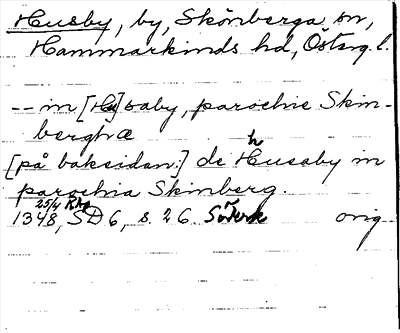 Husby, by, Skönberga sn,
Hammarkinds hd, Österg. l.
-- in [Hu]saby, parochie Skin-
berghæ
[på baksidan:] de Husaby in
parochia Skinberg.
1348 25/4, SD 6, s. 26. orig.